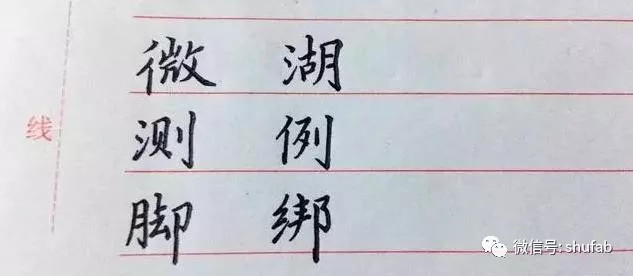 微 湖
线
测 例
脚 绑
微信号: shufab